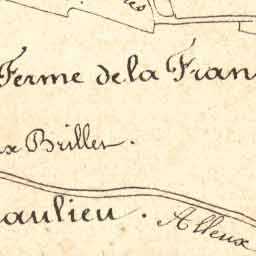 es
Ferme de la Fran
ux Brillet.
aulieu.
Alleux